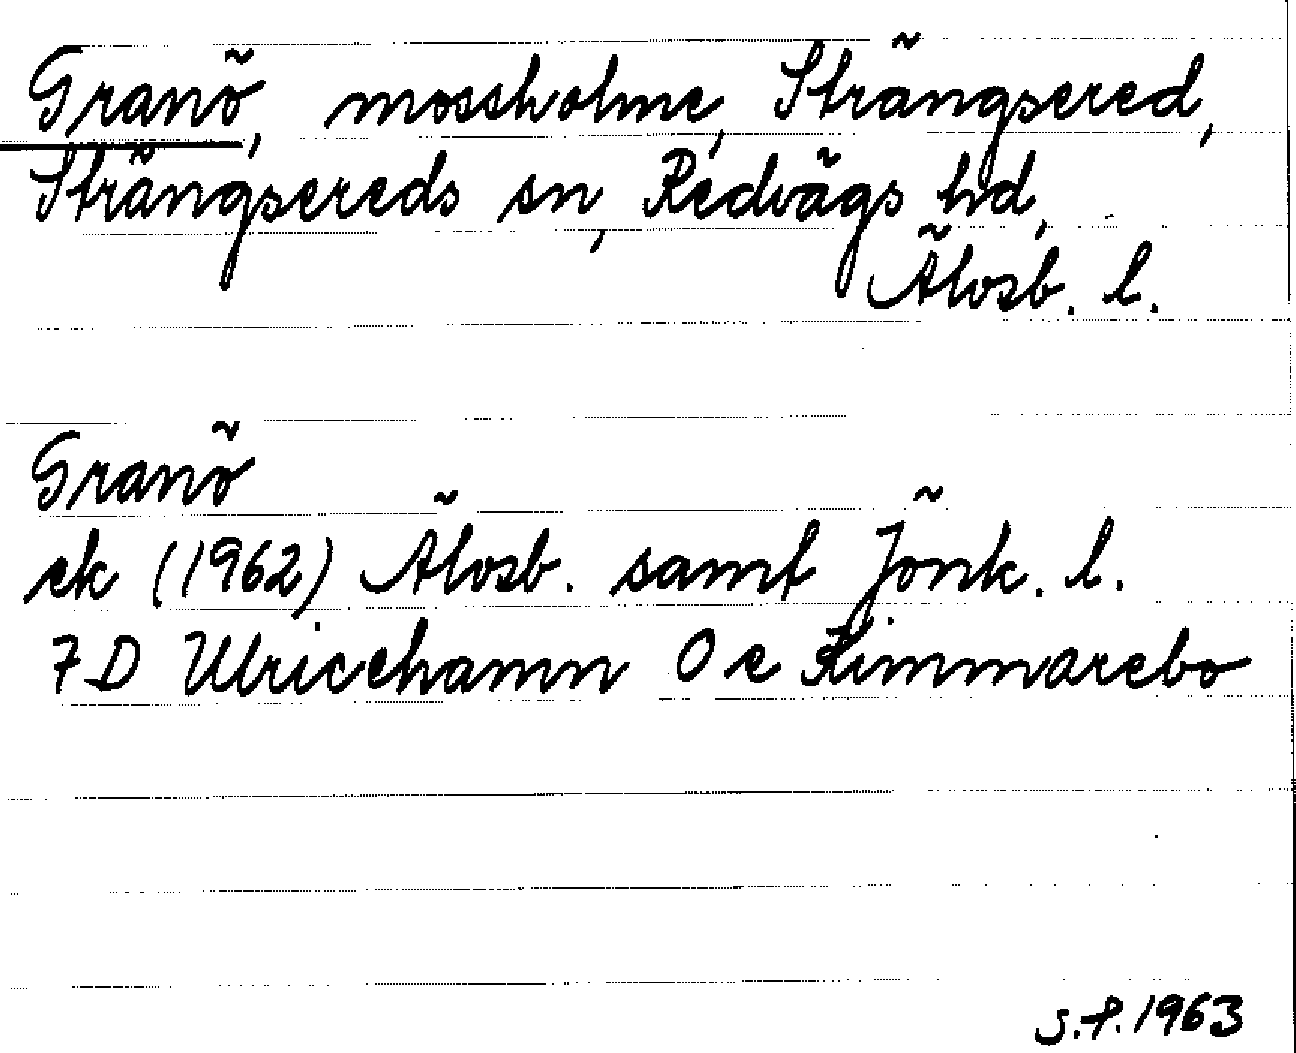 Granö, mossholme, Strängsered,
Strängsereds sn, Redvägs hd,
Älvsb. l.
Granö
ek (1962) Älvsb. samt Jönk. l.
7D Ulricehamn 0e Kimmarebo
S.P. 1963